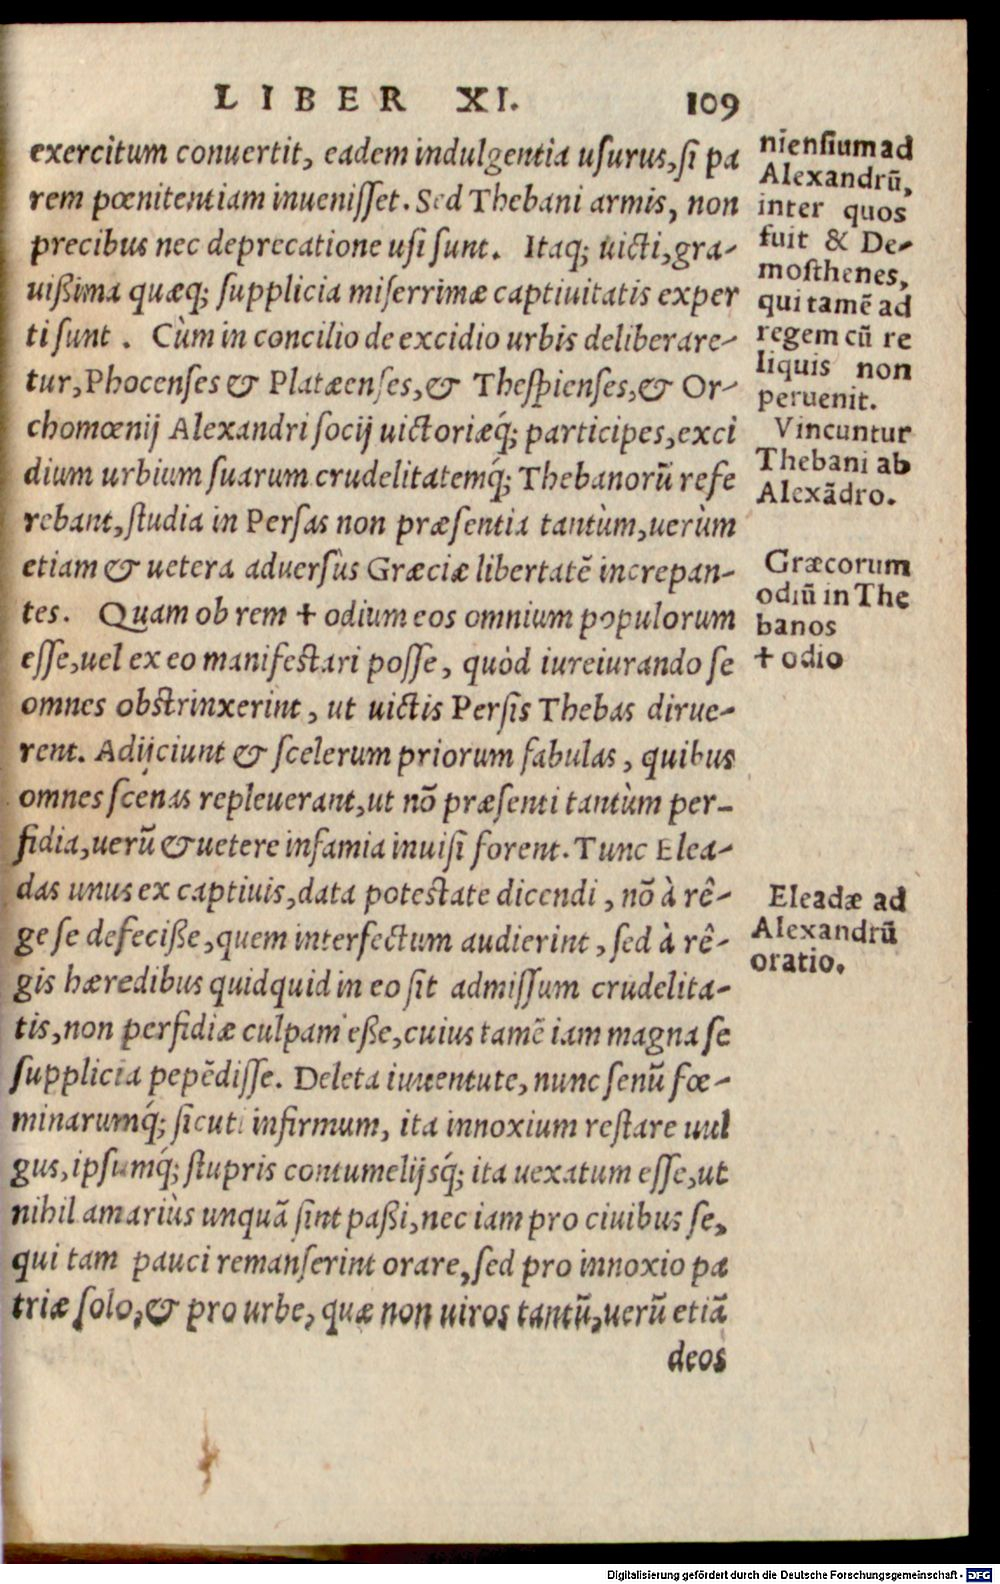 LIBER XI. 109
exercitum conuertit, eadem indulgentia usurus, si pa
rem pœnitentiam inuenisset. Sed Thebani armis, non
precibus nec deprecatione usi sunt. Itaq; uicti, gra-
uißima quæq; supplicia miserrimæ captiuitatis exper
ti sunt. Cùm in concilio de excidio urbis deliberare-
tur, Phocenses & Platæenses, & Thespienses, & Or-
chomœnij Alexandri socij uictoriæq́; participes, exci
dium urbium suarum crudelitatemq́; Thebanorũ refe
rebant, studia in Persas non præsentia tantùm, uerùm
etiam & uetera aduersùs Græciæ libertatẽ increpan-
tes. Quam ob rem ✝ odium eos omnium populorum
esse, uel ex eo manifestari posse, quòd iureiurando se
omnes obstrinxerint, ut uictis Persis Thebas dirue-
rent. Adijciunt & scelerum priorum fabulas, quibus
omnes scenas repleuerant, ut nõ præsenti tantùm per-
fidia, uerũ & uetere infamia inuisi forent. Tunc Elea-
das unus ex captiuis, data potestate dicendi, nõ à rê-
ge se defeciße, quem interfectum audierint, sed à rê-
gis hæredibus quidquid in eo sit admissum crudelita-
tis, non perfidiæ culpam eße, cuius tamẽ iam magna se
supplicia pepẽdisse. Deleta iuuentute, nunc senũ fœ-
minarumq́; sicuti infirmum, ita innoxium restare uul
gus, ipsumq́; stupris contumelijsq́; ita uexatum esse, ut
nihil amariùs unquã sint paßi, nec iam pro ciuibus se,
qui tam pauci remanserint orare, sed pro innoxio pa
triæ solo, & pro urbe, quæ non uiros tantũ, uerũ etiã
deos
niensium ad
Alexandrũ,
inter quos
fuit & De-
mosthenes,
qui tamẽ ad
regem cũ re
liquis non
peruenit.
Vincuntur
Thebani ab
Alexãdro.
Græcorum
odiũ in The
banos
✝ odio
Eleadæ ad
Alexandrũ
oratio.
Digitalisierung gefördert durch die Deutsche Forschungsgemeinschaft - DFG